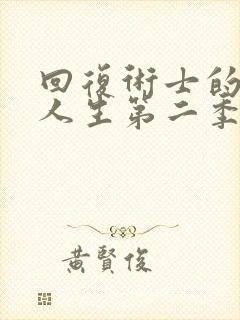 回復術士的
人生第二季
黃賢俊